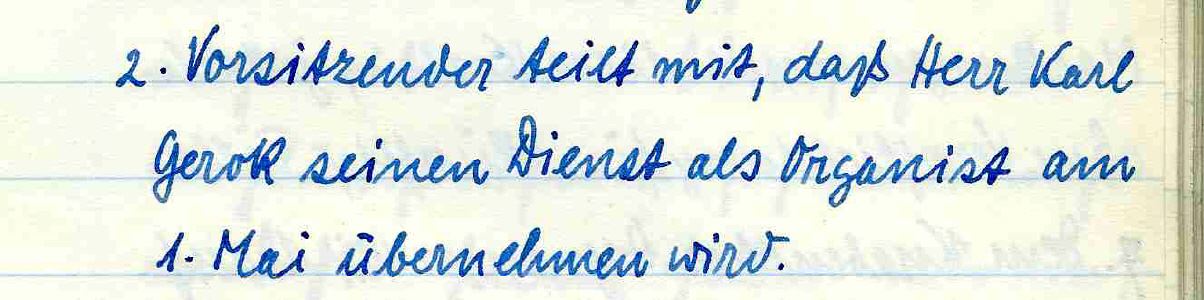 2. Vorsitzender teilt mit, daß Herr Karl
Gerok seinen Dienst als Organist am
1. Mai übernehmen wird.